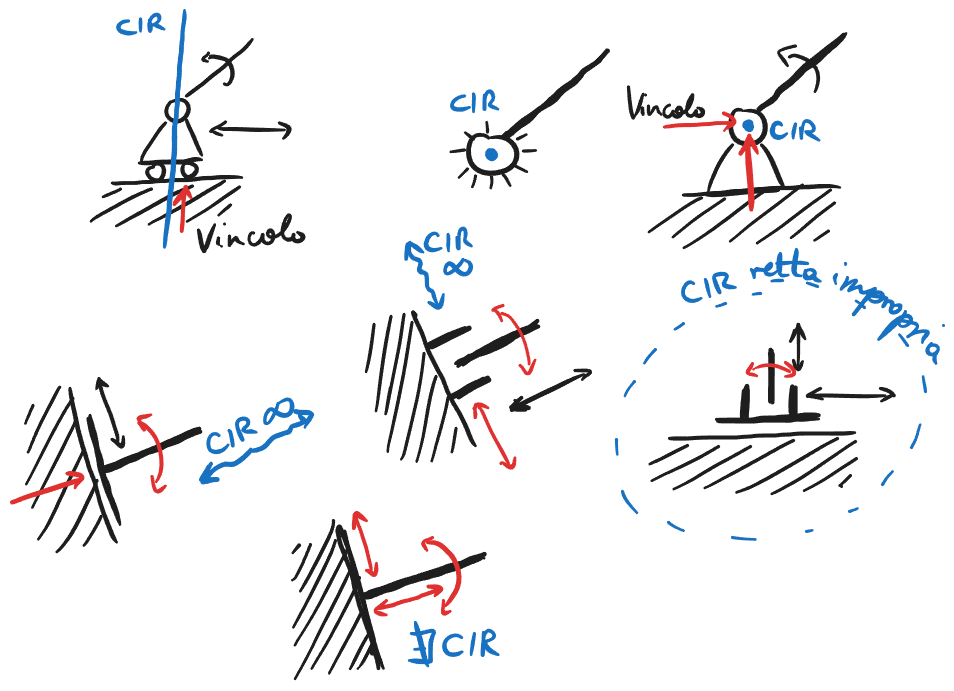 CIR
Vincolo
CIR
Vincolo
CIR
CIR
∞
CIR retta impropria
CIR ∞
∄ CIR